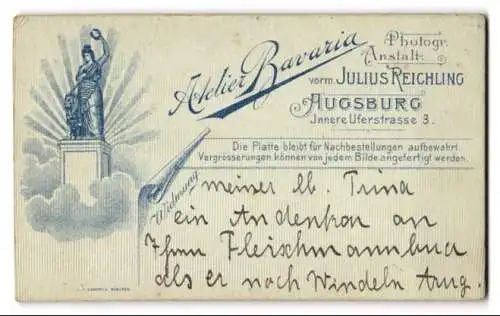 Atelier Bavaria
Photogr.
Anstalt.
vorm. JULIUS REICHLING
AUGSBURG
Innere Uferstrasse 3.
Die Platte bleibt für Nachbestellungen aufbewahrt.
Vergrösserungen können von jedem Bilde angefertigt werden.
Widmung
meiner lb. Trina
ein Andenken an
Ihren Fleischmannbua
als er noch Windeln trug.